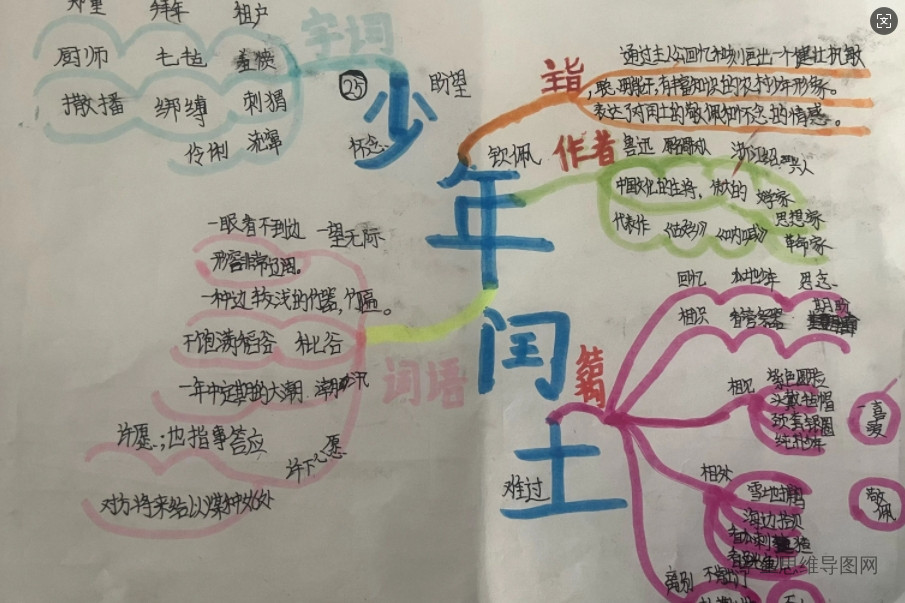 郑重 拜年 租户
厨师 毛毡 羞
撒播 绑缚 刺猬
伶俐 潮
字词
25
少年闰土
盼望
怀念
钦佩
难过
主旨
通过主人公回忆和刻画出一个健壮机敏
聪明能干,有丰富知识的农村少年形象。
表达了对闰土的敬佩和怀念的情感。
作者
鲁迅 原名 浙江绍兴人
中国文化的主将, 伟大的 文学家
代表作 《故乡》《呐喊》 思想家
革命家
词语
一眼看不到边 一望无际
形容非常辽阔。
一种边 浅的竹器, 竹匾。
干饱满稻谷 秕谷
一年中定期的大潮 潮汛
许愿;也指事答应
许下心愿
对方将来给以某种好处
结构
回忆 少年 思念
相识 盼
相见 紫色圆脸
头戴毡帽
颈套银圈
喜爱
相处 雪地捕鸟
海边拾贝
刺猹
敬佩
离别 不
思维导图网